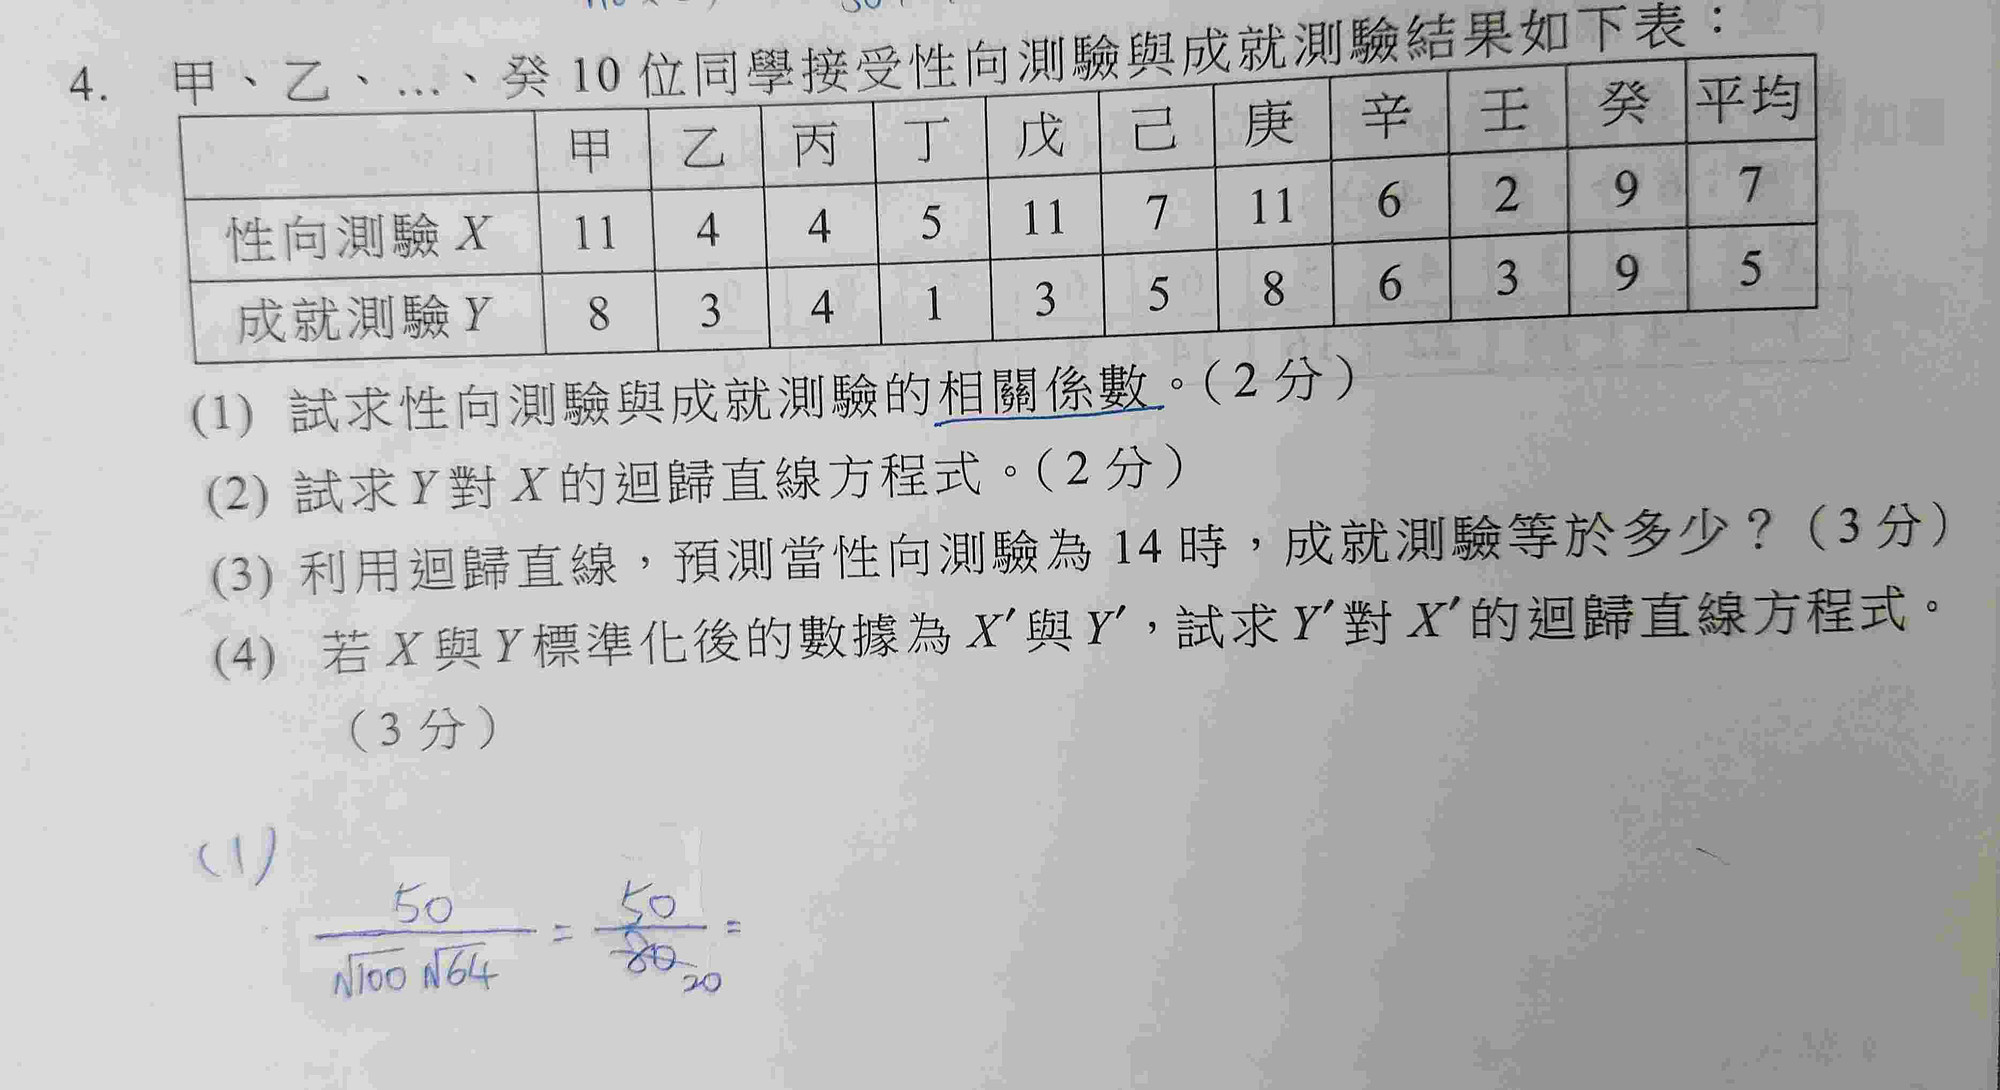 4. 甲、乙、…、癸 10 位同學接受性向測驗與成就測驗結果如下表：
甲 乙 丙 丁 戊 己 庚 辛 壬 癸 平均
性向測驗 X 11 4 4 5 11 7 11 6 2 9 7
成就測驗 Y 8 3 4 1 3 5 8 6 3 9 5
(1) 試求性向測驗與成就測驗的相關係數。(2 分)
(2) 試求 Y 對 X 的迴歸直線方程式。(2 分)
(3) 利用迴歸直線，預測當性向測驗為 14 時，成就測驗等於多少？(3 分)
(4) 若 X 與 Y 標準化後的數據為 X′ 與 Y′，試求 Y′ 對 X′ 的迴歸直線方程式。
(3 分)
(1)
50 / √100 √64 = 50 / 80 =
20